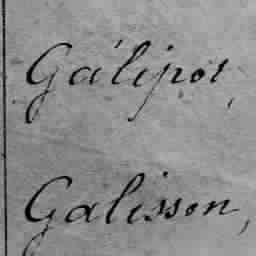 Galipot,
Galisson,